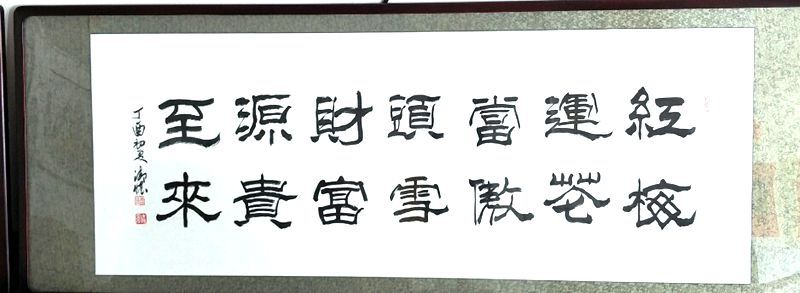 紅運當頭財源至
梅花傲雪富貴來
丁酉初夏